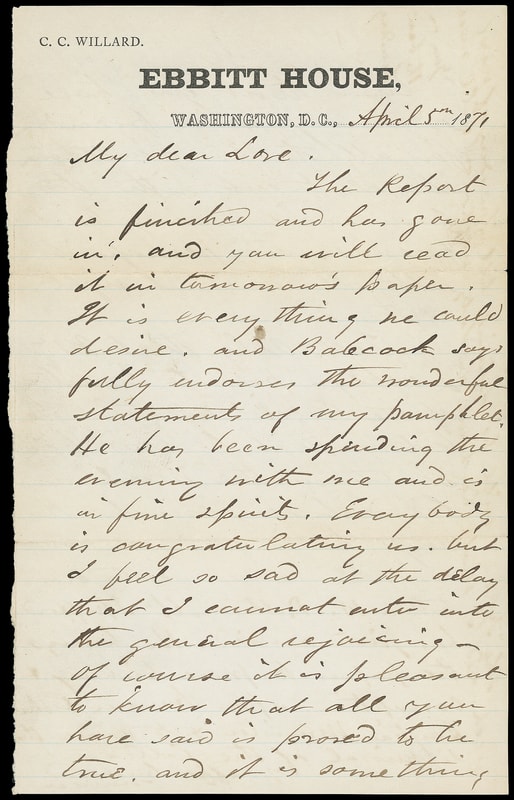 C. C. WILLARD.
EBBITT HOUSE,
WASHINGTON, D.C., April 5th 1871
My dear Love.
The Report
is finished and has gone
in, and you will read
it in tomorrow's paper.
It is everything we could
desire. and Babcock says
fully endorses the wonderful
statements of my pamphlet.
He has been spending the
evening with me and is
in fine spirits. Everybody
is congratulating us. but
I feel so sad at the delay
that I cannot enter into
the general rejoicing —
of course it is pleasant
to know that all you
have said is proved to be
true. and it is something